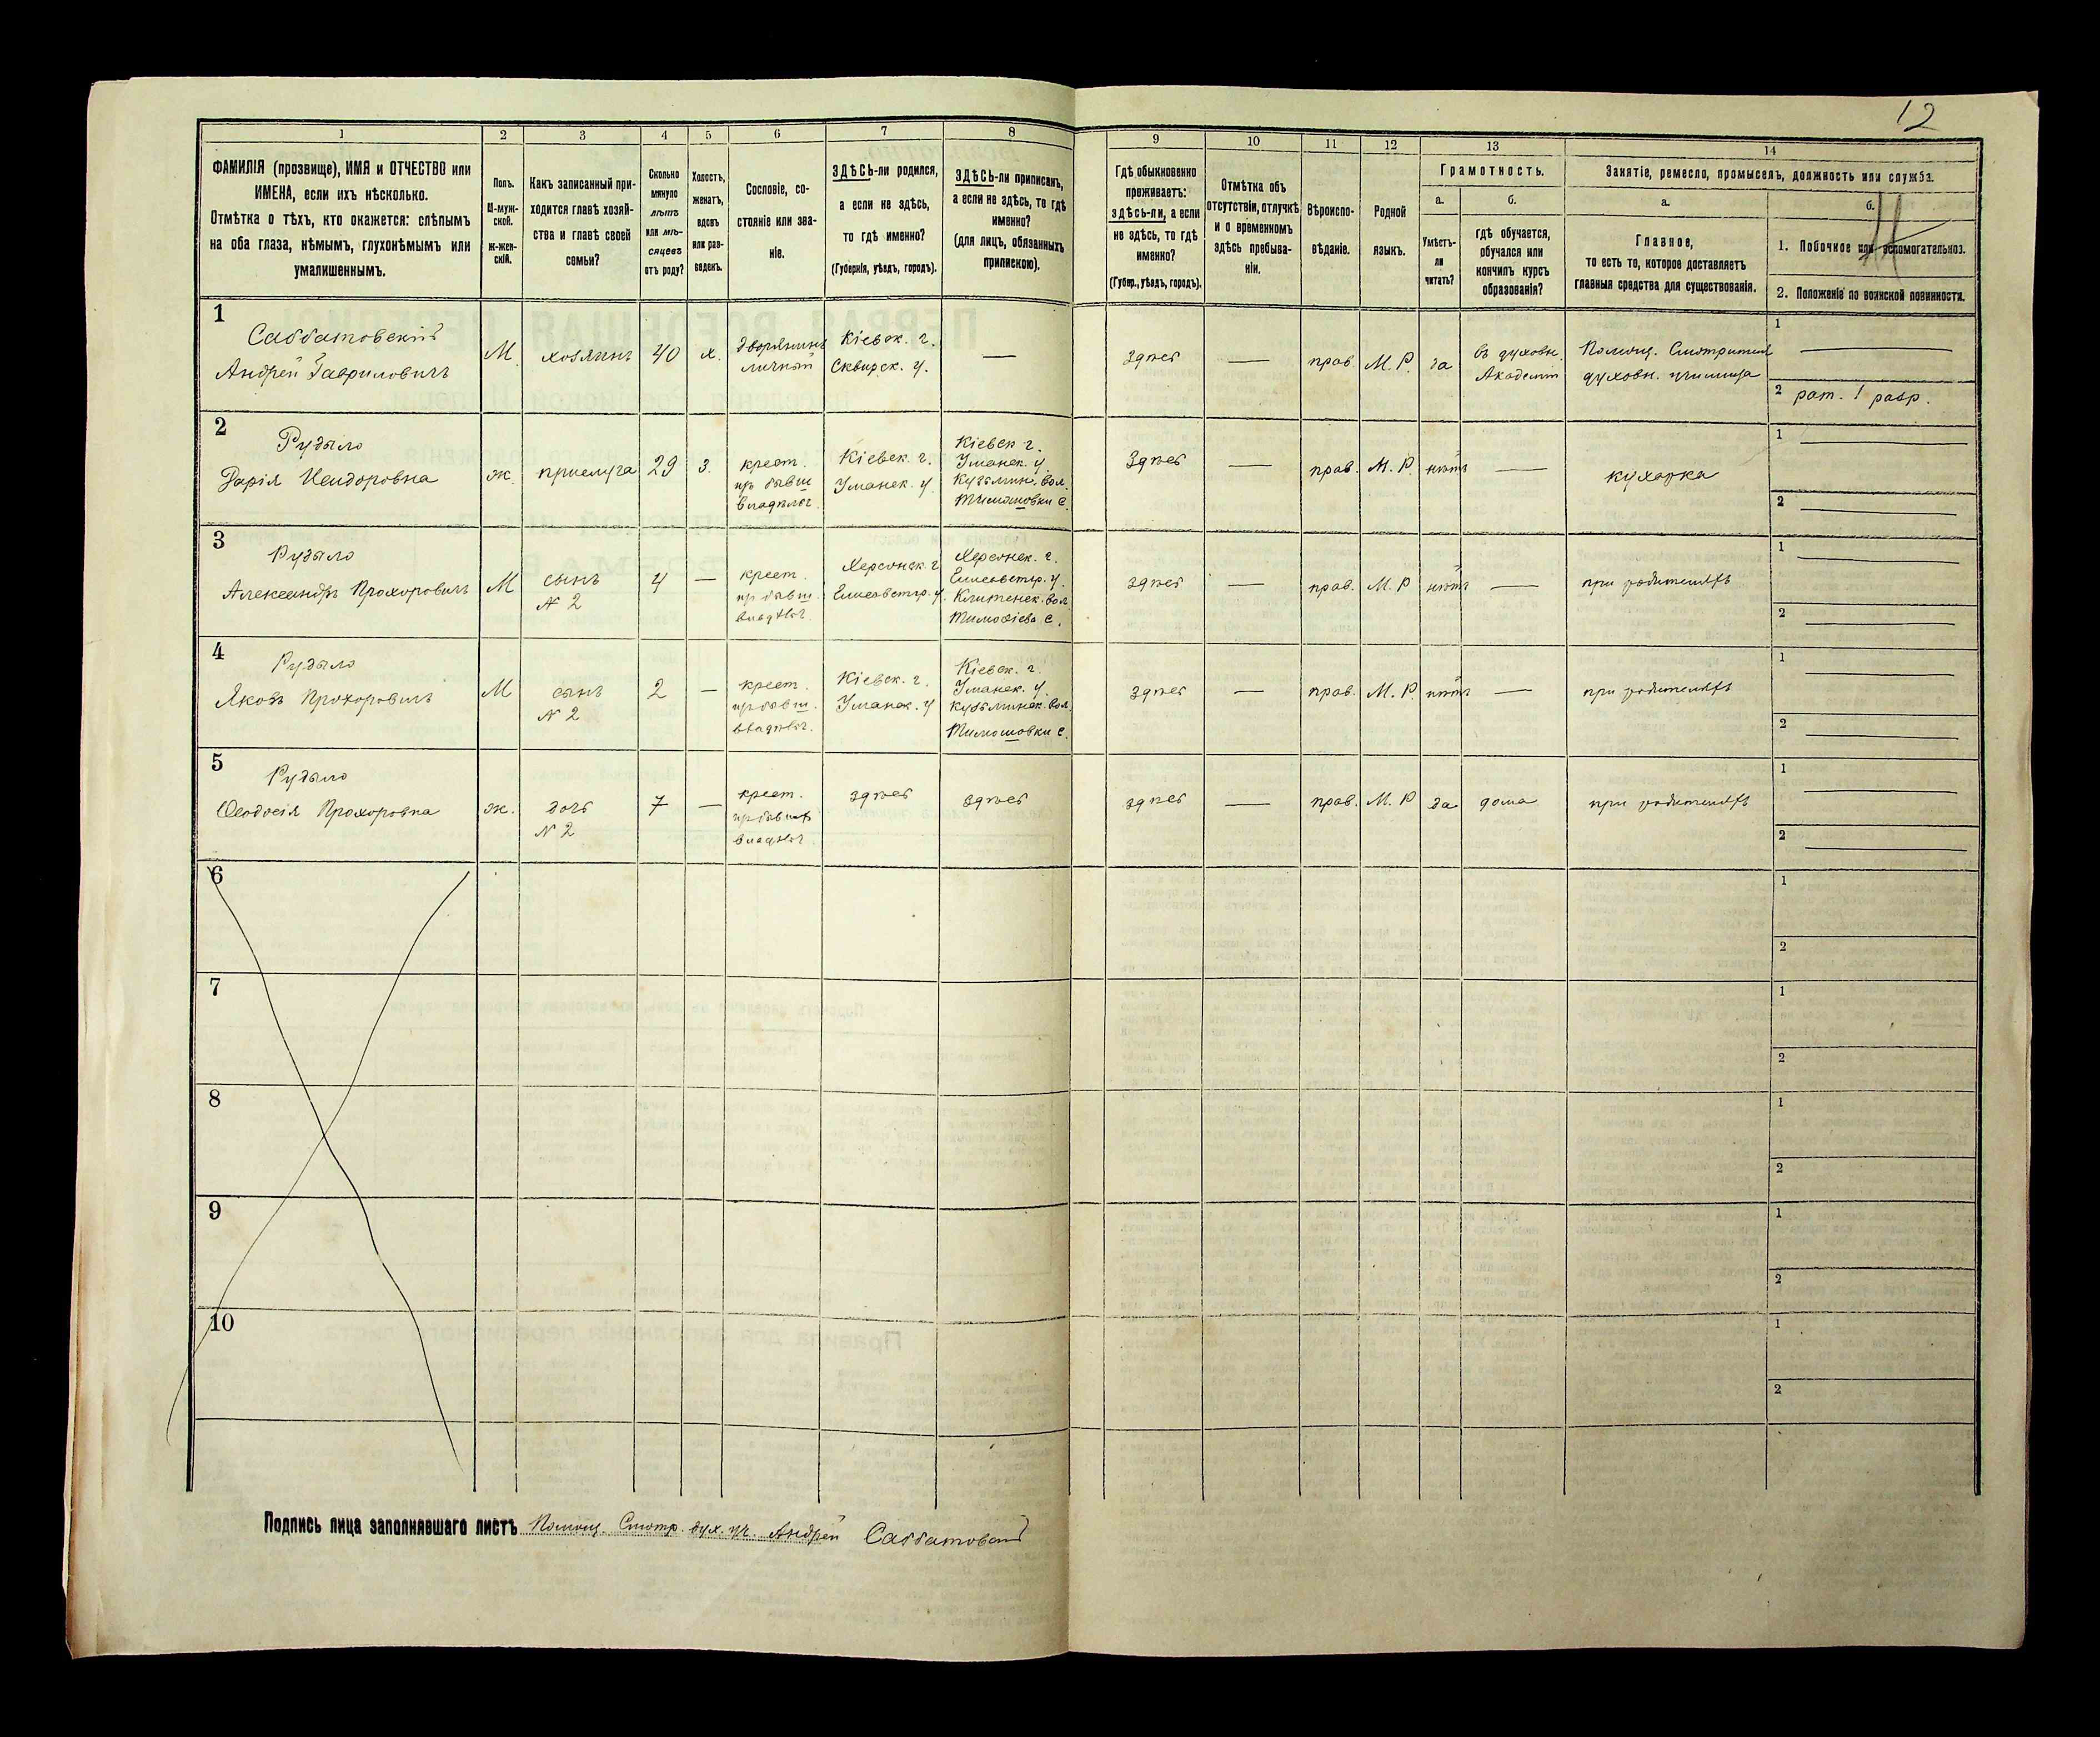 12
1 2 3 4 5 6 7 8 9 10 11 12 13 14
ФАМИЛІЯ (прозвище), ИМЯ и ОТЧЕСТВО или
ИМЕНА, если ихъ нѣсколько.
Отмѣтка о тѣхъ, кто окажется: слѣпымъ
на оба глаза, нѣмымъ, глухонѣмымъ или
умалишеннымъ.
Полъ.
М-муж-
ской.
ж-жен-
скій.
Какъ записанный при-
ходится главѣ хозяй-
ства и главѣ своей
семьи?
Сколько
минуло
лѣтъ
или мѣ-
сяцевъ
отъ роду?
Холостъ,
женатъ,
вдовъ
или раз-
веденъ.
Сословіе, со-
стояніе или зва-
ніе.
ЗДѢСЬ-ли родился,
а если не здѣсь,
то гдѣ именно?
(Губернія, уѣздъ, городъ).
ЗДѢСЬ-ли приписанъ,
а если не здѣсь, то гдѣ
именно?
(для лицъ, обязанныхъ
припискою).
Гдѣ обыкновенно
проживаетъ:
здѣсь-ли, а если
не здѣсь, то гдѣ
именно?
(Губер., уѣздъ, городъ).
Отмѣтка объ
отсутствіи, отлучкѣ
и о временномъ
здѣсь пребыва-
ніи.
Вѣроиспо-
вѣданіе.
Родной
языкъ.
Грамотность.
а.
Умѣетъ-
ли
читать?
б.
гдѣ обучается,
обучался или
кончилъ курсъ
образованія?
Занятіе, ремесло, промыселъ, должность или служба.
а.
Главное,
то есть то, которое доставляетъ
главныя средства для существованія.
б.
1. Побочное или вспомогательное.
2. Положеніе по воинской повинности.
1
Саббатовскій
Андрей Гавриловичъ
М
хозяинъ
40
х.
дворянинъ
личный
Кіевск. г.
Сквирск. у.
—
здѣсь
—
прав.
М. Р.
да
въ духовн.
Академіи
Помощ. Смотрителя
духовн. училища
1
2 рат. 1 разр.
2
Рудыло
Дарія Исидоровна
ж.
прислуга
29
з.
крест.
из бывш
владѣльч.
Кіевск. г.
Уманск. у.
Кіевск г.
Уманск. у.
Кузьмин. вол.
Тимошовки с.
Здѣсь
—
прав.
М. Р.
нѣтъ
—
кухарка
1
2
3
Рудыло
Александръ Прохоровичъ
М
сынъ
N 2
4
—
крест.
из бывш.
владѣльч.
Херсонск. г
Елисаветгр. у.
Херсонск. г.
Елисаветгр. у.
вол
Тимофіева с.
здѣсь
—
прав.
М. Р
нѣтъ
—
при родителяхъ
1
2
4
Рудыло
Яковъ Прохоровичъ
М
сынъ
N 2
2
—
крест.
из бывш.
владѣльч.
Кіевск. г.
Уманск. у
Кіевск. г.
Уманск. у.
Кузьминск. вол.
Тимошовки с.
здѣсь
—
прав.
М. Р
нѣтъ
—
при родителяхъ
1
2
5
Рудыло
Ѳеодосія Прохоровна
ж.
дочь
N 2
7
—
крест.
из бывшх
владѣльч.
здѣсь
здѣсь
здѣсь
—
прав.
М. Р
да
дома
при родителяхъ
1
2
6
1
2
7
1
2
8
1
2
9
1
2
10
1
2
Подпись лица заполнявшаго листъ Помощ. Смотр. дух. уч. Андрей Саббатовскій